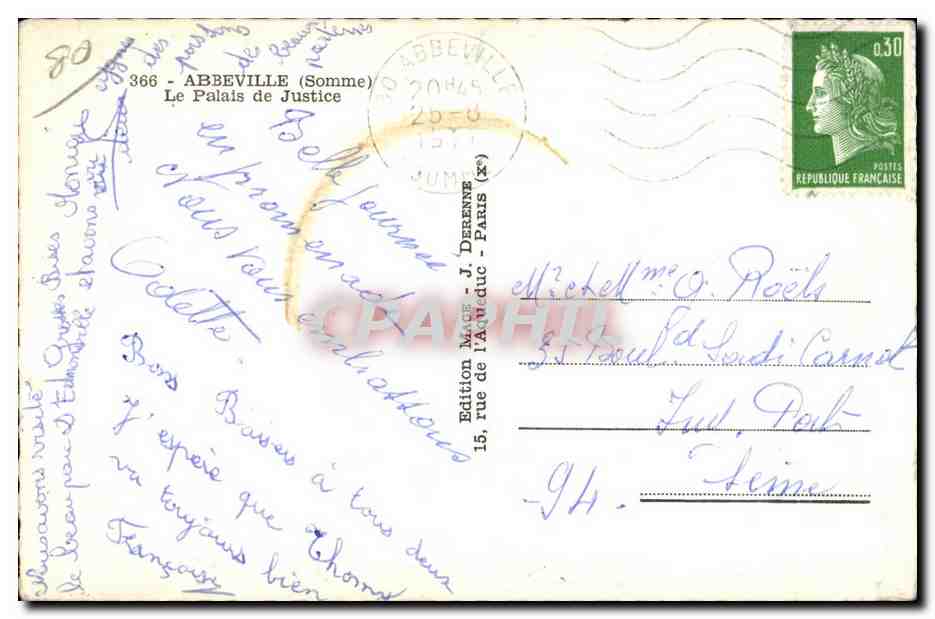 80
366 - ABBEVILLE (Somme)
Le Palais de Justice
Belle Journée
en promenade
Nous vous embrassons
Odette
Bons Baisers à tous deux
J'espère que Thomas
va toujours bien
Françoise
Nous avons visité
le beau parc d'Ermenonville et avons vu
Grosses Bises Monique
des poissons
de beaux
80 ABBEVILLE
20H45
25-8
SOMME
Edition MAGE - J. DERENNE
15, rue de l'Aqueduc - PARIS (Xe)
CPAPHIL
0,30
POSTES
REPUBLIQUE FRANÇAISE
Mr et Mme O. Roëls
35 Boul d Sadi Carnot
Ivry. Port
Seine
94.